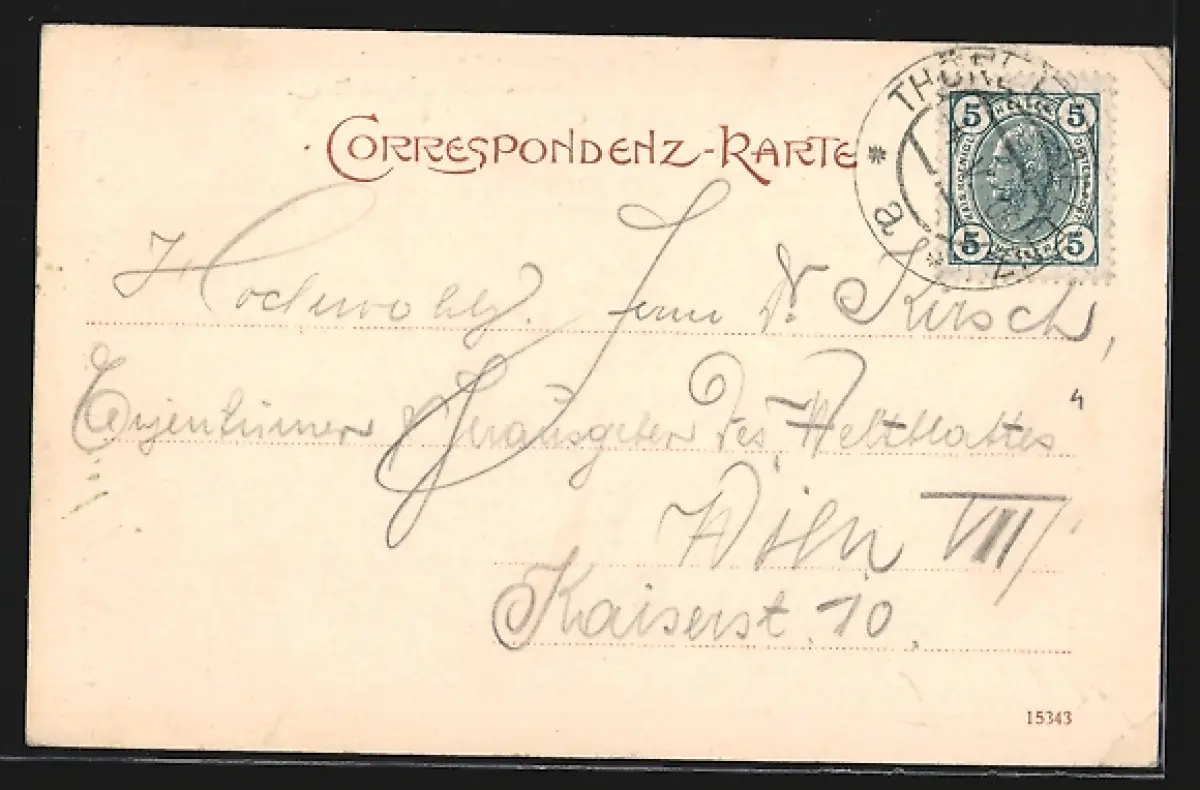 CORRESPONDENZ-KARTE
5 HELLER 5
5 HELLER 5
a
Hochwohlg. Herrn Dr. Kirsch,
Eigenthümer & Herausgeber des Weltblattes
Wien VIII
Kaiserst. 10.
15343